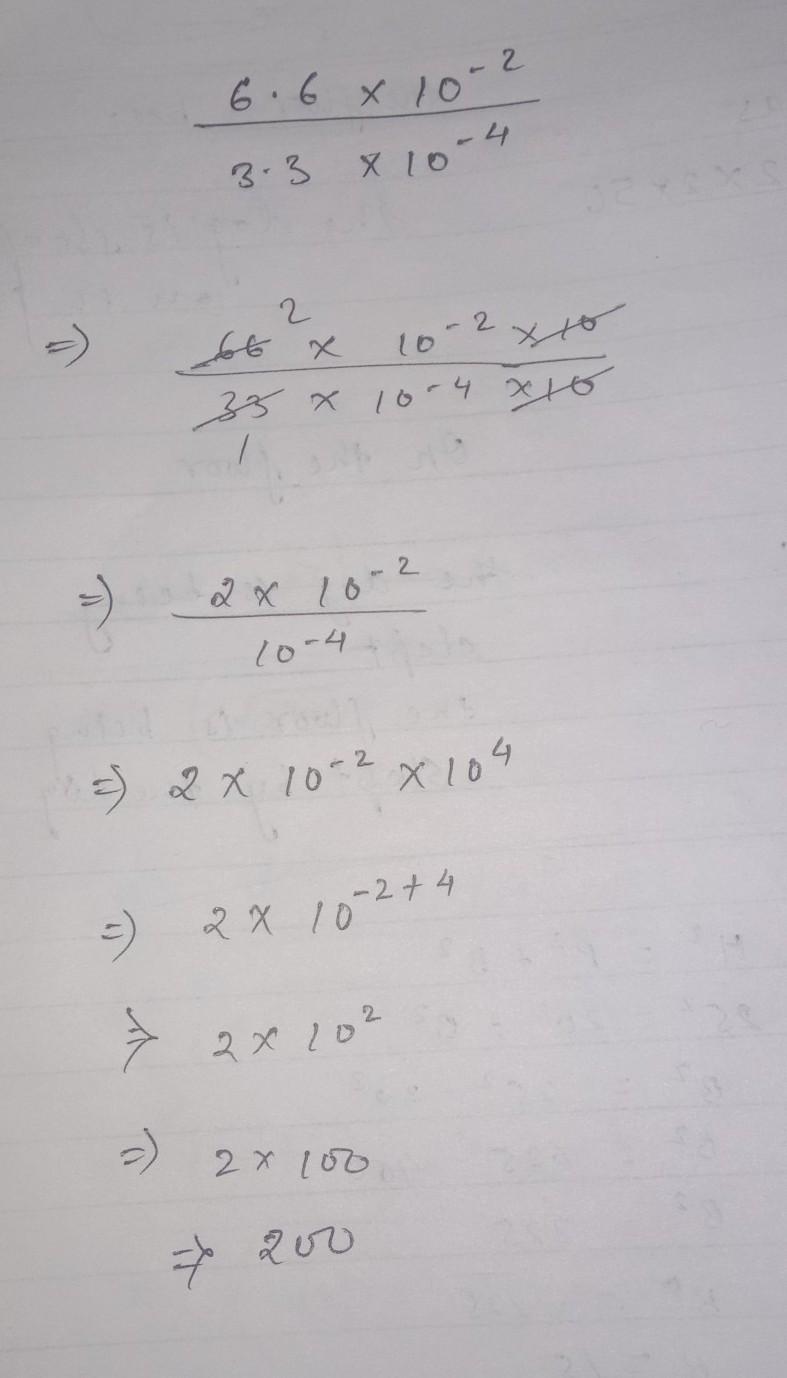 6.6 × 10⁻²
3.3 × 10⁻⁴
⇒ 66 2 × 10⁻² × 10
33 1 × 10⁻⁴ × 10
⇒ 2 × 10⁻²
10⁻⁴
⇒ 2 × 10⁻² × 10⁴
⇒ 2 × 10⁻²⁺⁴
⇒ 2 × 10²
⇒ 2 × 100
⇒ 200